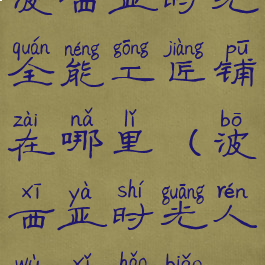 quán néng gōng jiàng pū
全能工匠铺
zài nǎ lǐ bō
在哪里（波
xī yà shí guāng rén
西亚时光人